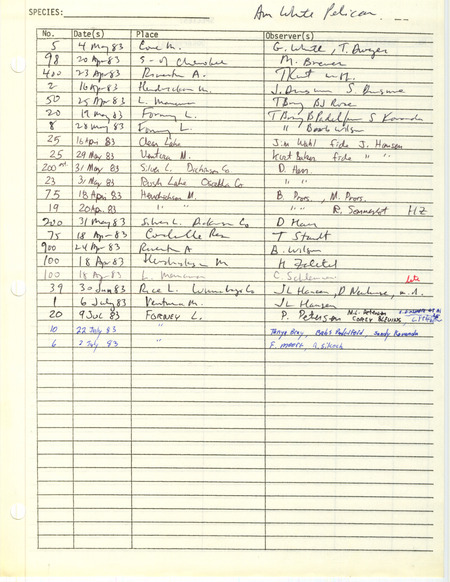 SPECIES: Am White Pelican
No. Date(s) Place Observer(s)
5 4 May 83 Cone M. G. White, T. Dwyer
98 20 Apr 83 S- of Cherokee M. Brewer
400 23 Apr 83 Riverton A. T Kent
2 16 Apr 83 Hendrickson M. J. Dinsmore S Dinsmore
50 25 Apr 83 L. Manawa T Bray BJ Rose
20 19 May 83 Forney L. T Bray B Padelford S Kovanda
8 28 May 83 Forney L. " Barb Wilson
25 16 Apr 83 Clear Lake Jim Wahl fide J. Hansen
25 29 May 83 Ventura M. Kurt Baker fide " "
200 31 May 83 Silver L. Dickinson Co D. Harr
23 31 May 83 Rush Lake Osceola Co " "
75 18 Apr 83 Hendrickson M. B. Proescholdt, M. Proescholdt
19 20 Apr 83 " " " " R. Somerlot HZ
200 31 May 83 Silver L. Dickinson Co D Harr
75 18 Apr 83 Coralville Res T Staudt
900 24 Apr 83 Riverton A B. Wilson
100 18 Apr 83 Hendrickson M H Zaletel
100 18 Apr 83 L. Manawa
39 30 Jun 83 Rice L. Winnebago Co JL Hansen, D late
1 6 July 83 Ventura M. JL Hansen
20 9 Jul 83 FORNEY L. P. Petersen M.L. PETERSEN COREY BLEVINS,
10 22 July 83 " Tanya Bray, Babs Padelford, Sandy Kovanda
6 2 July 83 " F. Moore, R. Silcock